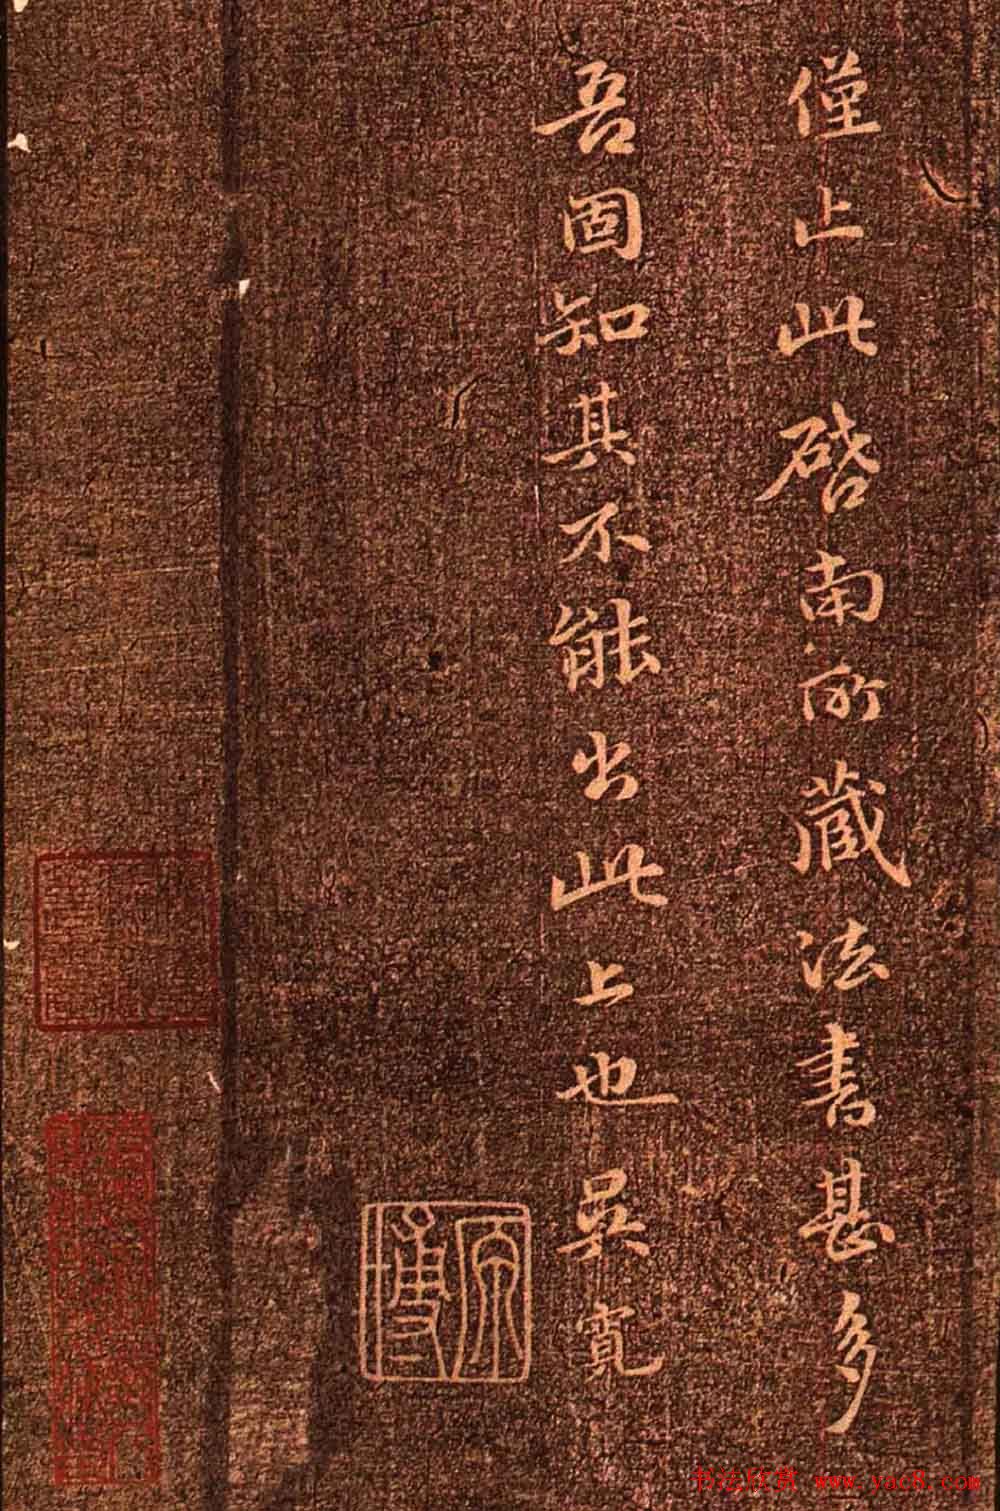 僅止此啓南所藏法書甚多
吾固知其不能出此上也吳寬
原博
书法欣赏 www.yac8.com